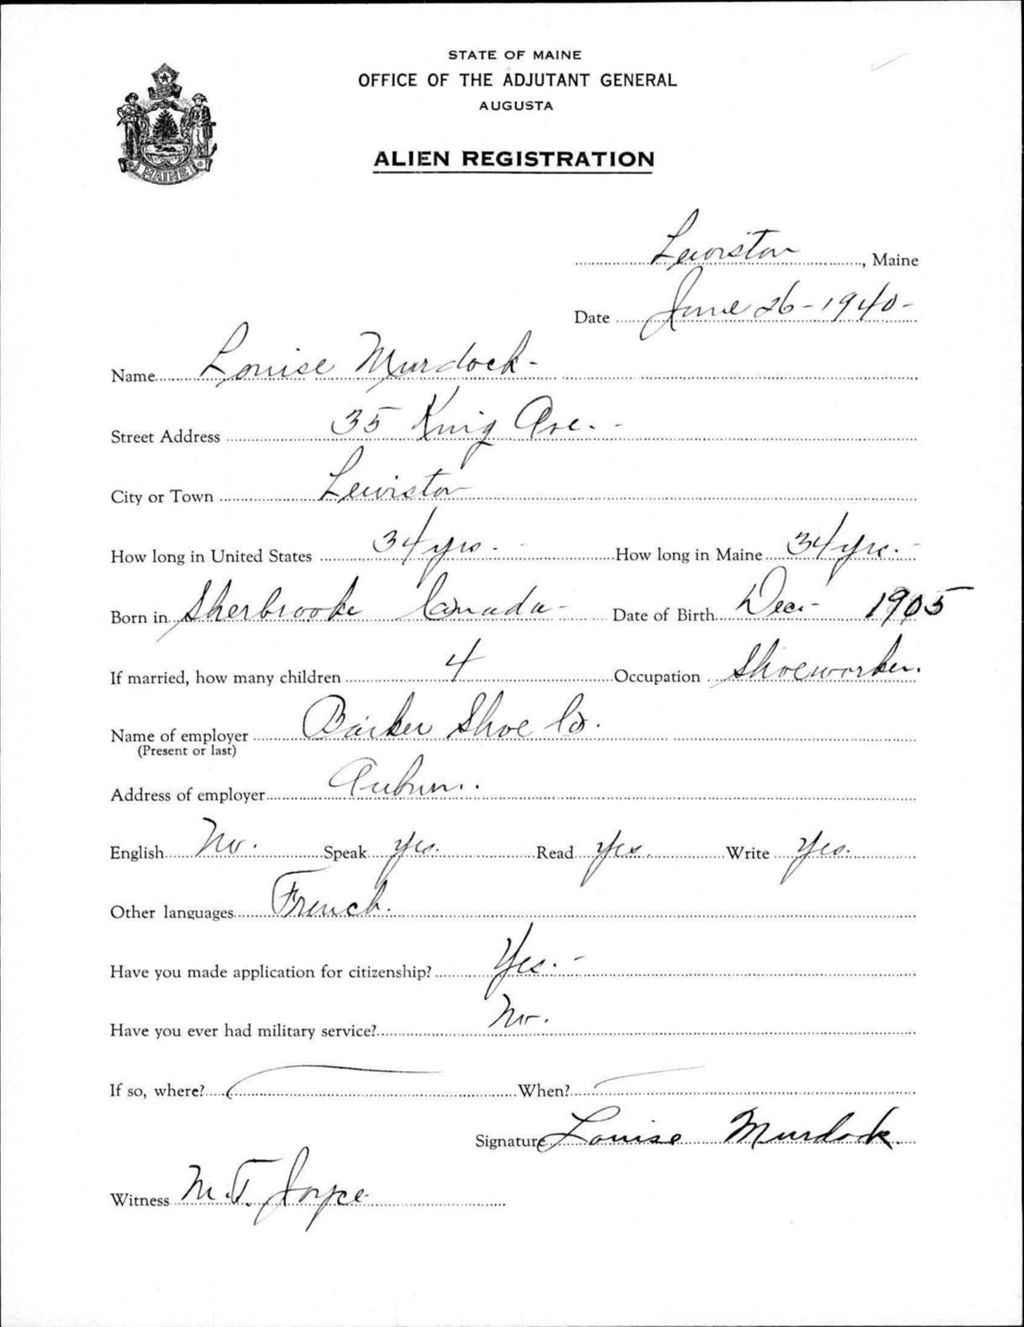 STATE OF MAINE
OFFICE OF THE ADJUTANT GENERAL
AUGUSTA
ALIEN REGISTRATION
MAINE
Lewiston, Maine
Date June 26-1940-
Name Louise Murdock-
Street Address 35 King Ave.-
City or Town Lewiston
How long in United States 34 yrs.- How long in Maine 34 yrs.-
Born in Sherbrooke Canada- Date of Birth Dec.- 1905
If married, how many children 4 Occupation Shoeworker.
Name of employer Barker Shoe Co.
(Present or last)
Address of employer Auburn.
English No. Speak yes. Read yes. Write Yes.
Other languages French.
Have you made application for citizenship? Yes.-
Have you ever had military service? No.
If so, where? When?
Signature Louise Murdock.
Witness M.T. Joyce